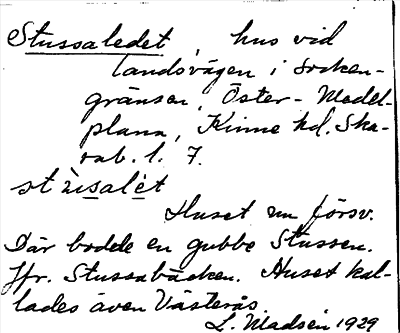 Stussaledet, hus vid
landsvägen i socken-
gränsen, Öster-Medel-
plana, Kinne hd. Ska-
rab. l. 7.
Huset nu försv.
Där bodde en gubbe Stussen.
Jfr. Stussabäcken. Huset kal-
lades även Västerås.
L. Madsén 1929